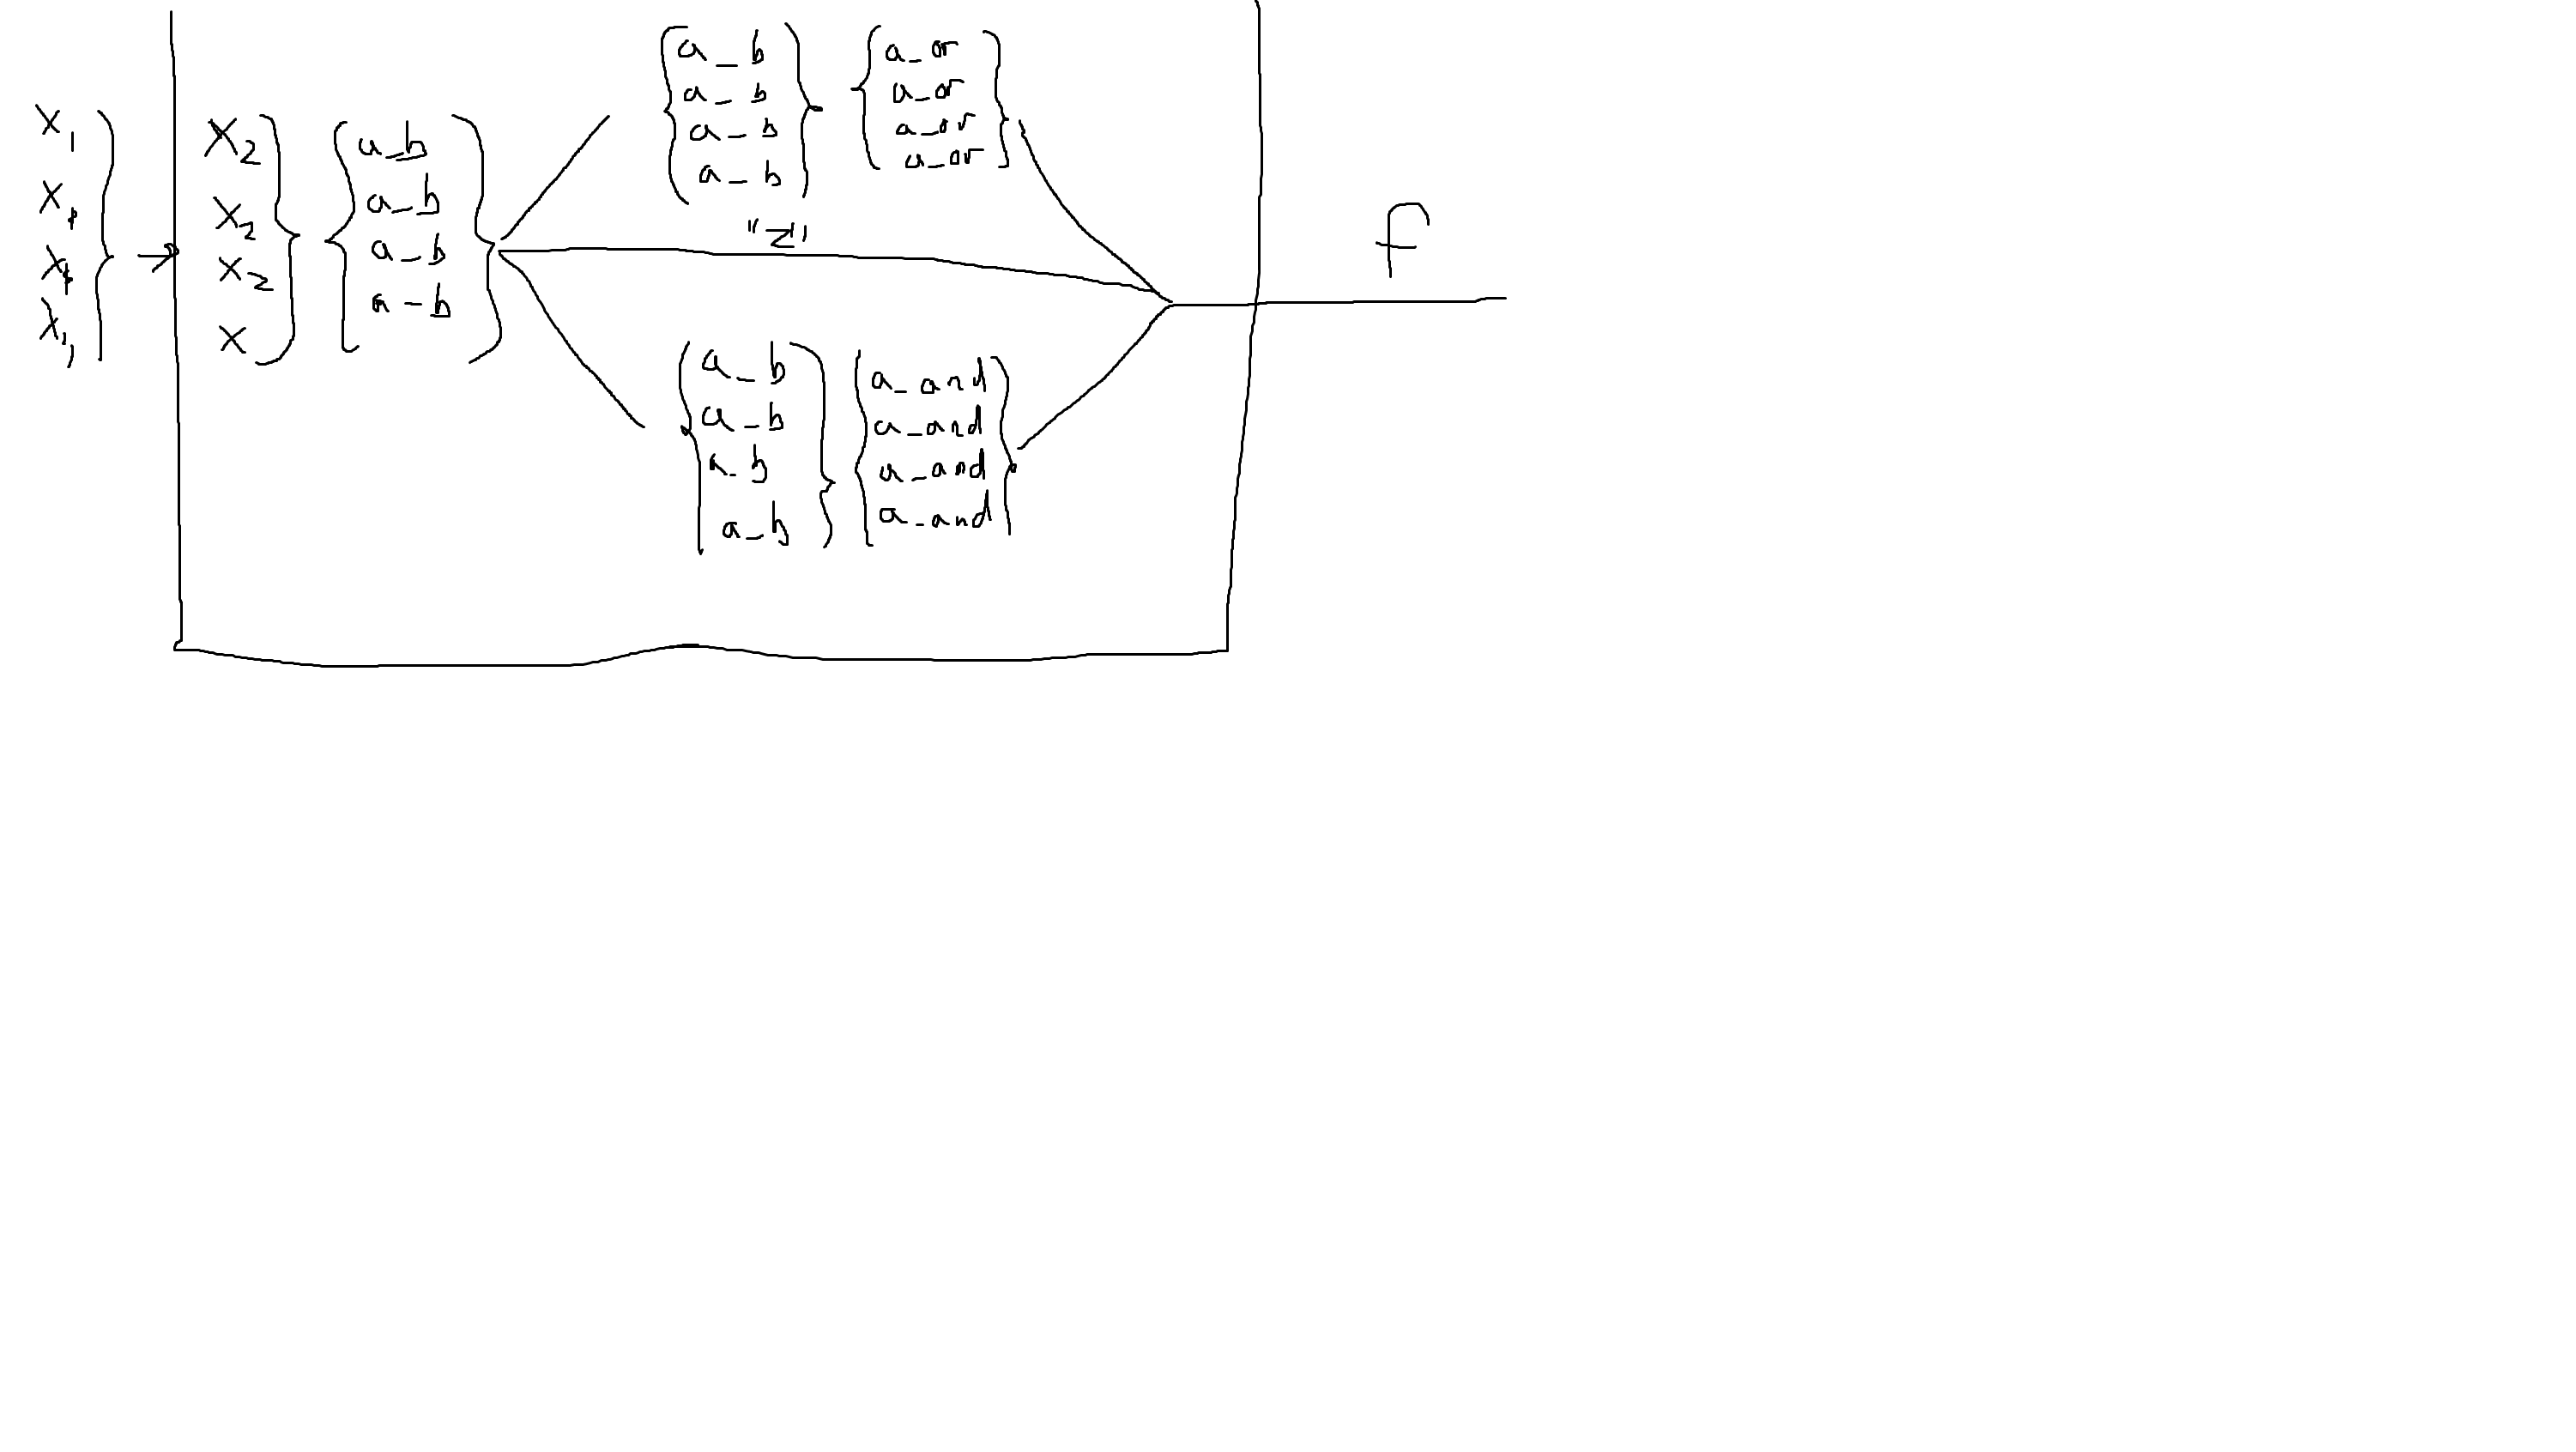 x1
x1
x1
x1
x2
x2
x2
x
a_b
a_b
a_b
a_b
a_b
a_b
a_b
a_b
a_or
a_or
a_or
a_or
"Z"
a_b
a_b
a_b
a_b
a_and
a_and
a_and
a_and
f